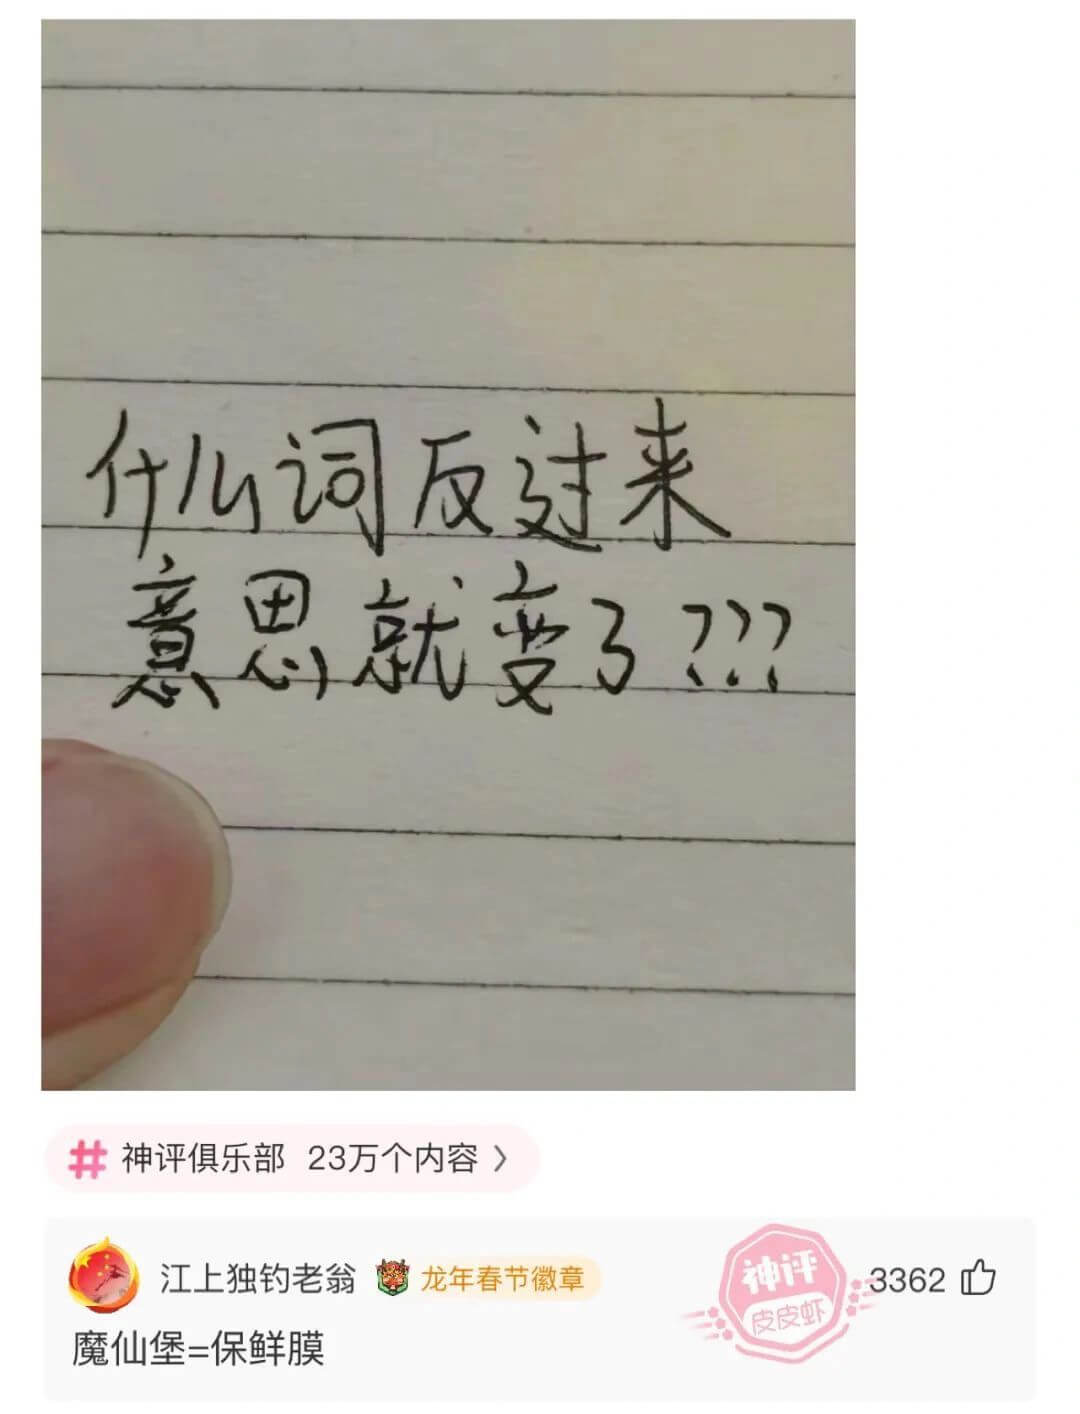 什么词反过来
意思就变了???
神评俱乐部 23万个内容
江上独钓老翁 龙年春节徽章
神评
皮皮虾
3362
魔仙堡=保鲜膜